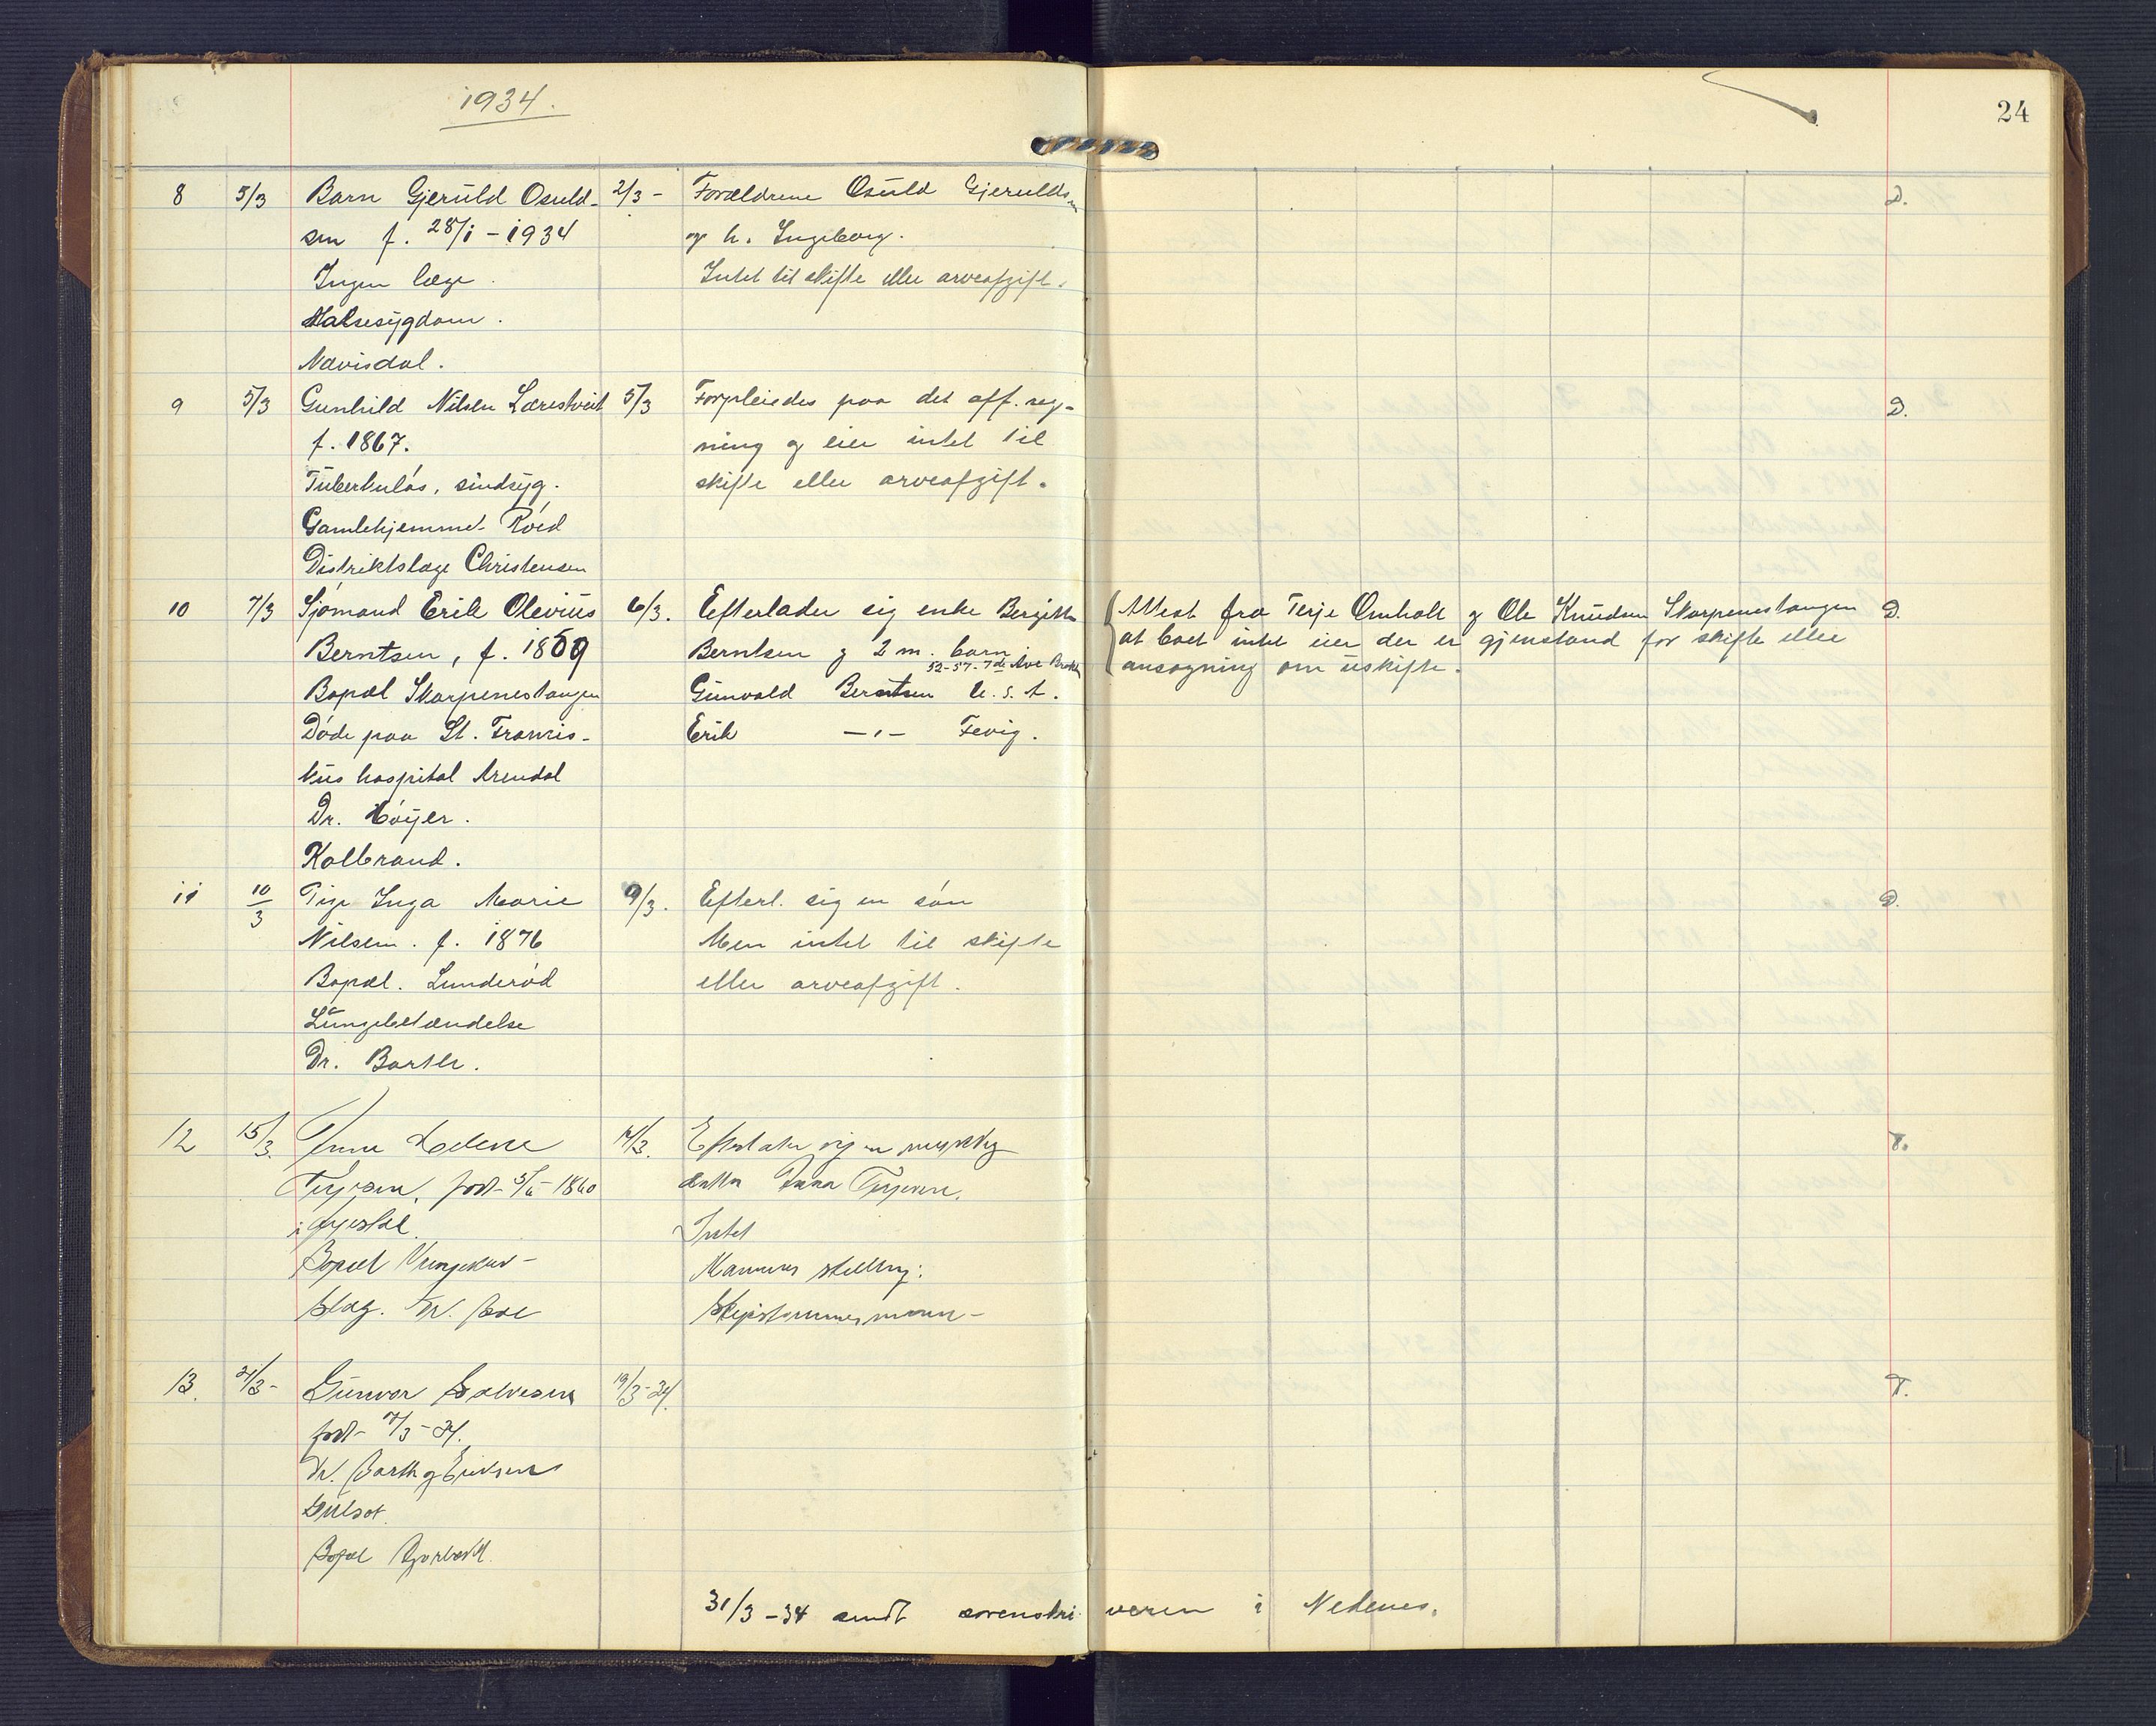 1934.
24
8 5/3 Barn Gjeruld Osuld- 2/3 - Forældrene Osuld Gjerulds- D.
sen f. 28/1 - 1934 og h. Ingeborg.
Ingen læge. Intet til skifte eller arveafgift.
Halsesygdom.
Navisdal.
9 5/3 Gunhild Nilsen Lærestveit 5/3 Forpleiedes paa det off. reg- D.
f. 1867. ning og eier intet til
Tuberkuløs, sindsyg. skifte eller arveafgift.
Gamlehjemmet Röed
Distriktslæge Christensen
10 7/3 Sjømand Erik Olevius 6/3. Efterlader sig enke Bergitte Attest fra Terje Omholt og Ole Knudsen Skarpenestangen D.
Berntsen, f. 1859 Berntsen og 2 m. barn. at boet intet eier der er gjenstand for skifte eller
52-57-7de Ave Brokl
Bopæl Skarpenestangen Gunvald Berntsen U.S.A. ansøgning om uskifte.
Døde paa St. Francis- Erik -"- Fevig.
kus hospital Arendal
Dr. Höyer.
Kolbrand.
11 10/3 Pige Inga Marie 9/3. Efterl. sig en søn D.
Nilsen. f. 1876 Men intet til skifte
Bopæl. Lunderød eller arveafgift.
Lungebetændelse
Dr. Barth.
12 15/3. Anne Helene 14/3. Efterlater sig en myndig T.
Terjesen, født 5/6 1860 datter Anna Terjesen.
i Intet
Bopæl Mannens stilling:
Slag. Dr. Boe Skipstømmermann -
13. 21/3- Gunvor Salvesen 19/3-34. T.
født 7/3-34.
Dr. Barth og Eriksen
Gulsot.
Bopæl
31/3 - 34 sendt sorenskriveren i Nedenes.